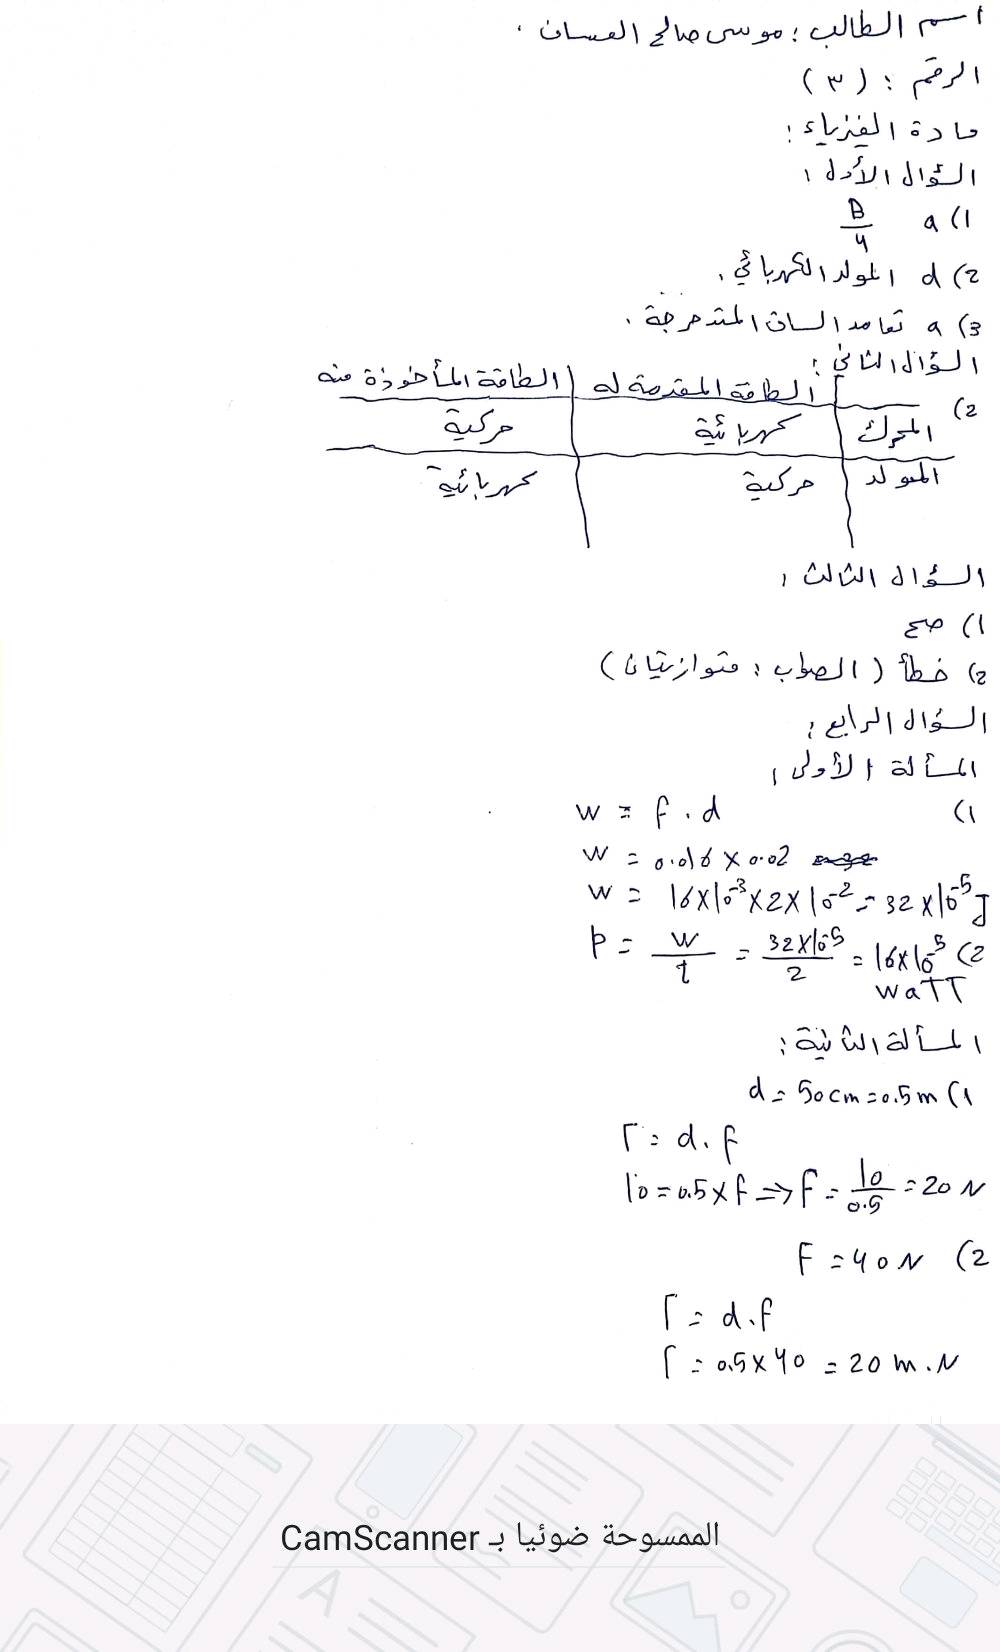 اسم الطالب : موسى صالح العسان .
الرقم : (٣)
مادة الفيزياء :
السؤال الأول :
1) a B/4
2) d المولد الكهربائي .
3) a تعامد الساق المتدحرجة .
السؤال الثاني :
2) الطاقة المقدمة له | الطاقة المأخوذة منه
المحرك | كهربائية | حركية
المولد | حركية | كهربائية
السؤال الثالث :
1) صح
2) خطأ (الصواب : متوازيتان)
السؤال الرابع :
المسألة الأولى :
1) W = F . d
W = 0.016 × 0.02
W = 16×10⁻³×2×10⁻² = 32×10⁻⁵ J
2) P = W/t = 32×10⁻⁵/2 = 16×10⁻⁵
waTT
المسألة الثانية :
1) d = 50cm = 0.5m
Γ = d . F
10 = 0.5 × F ⇒ F = 10/0.5 = 20 N
2) F = 40 N
Γ = d . F
Γ = 0.5 × 40 = 20 m . N
الممسوحة ضوئيا بـ CamScanner